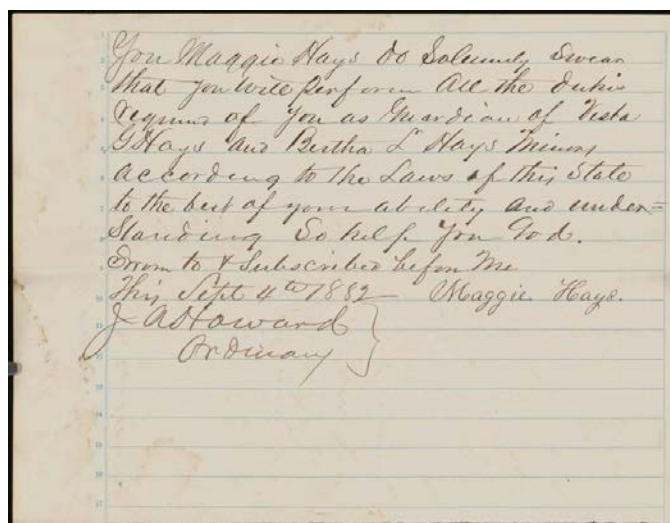 You Maggie Hays do Solemnly Swear
that you will perform All the Duties
required of you as Guardian of Vesta
G Hays and Bertha L Hays Minors
according to the Laws of this State
to the best of your ability and under=
standing So help You God.
Sworn to & Subscribed before Me
This Sept 4th 1882 Maggie Hays.
J A Howard
Ordinary